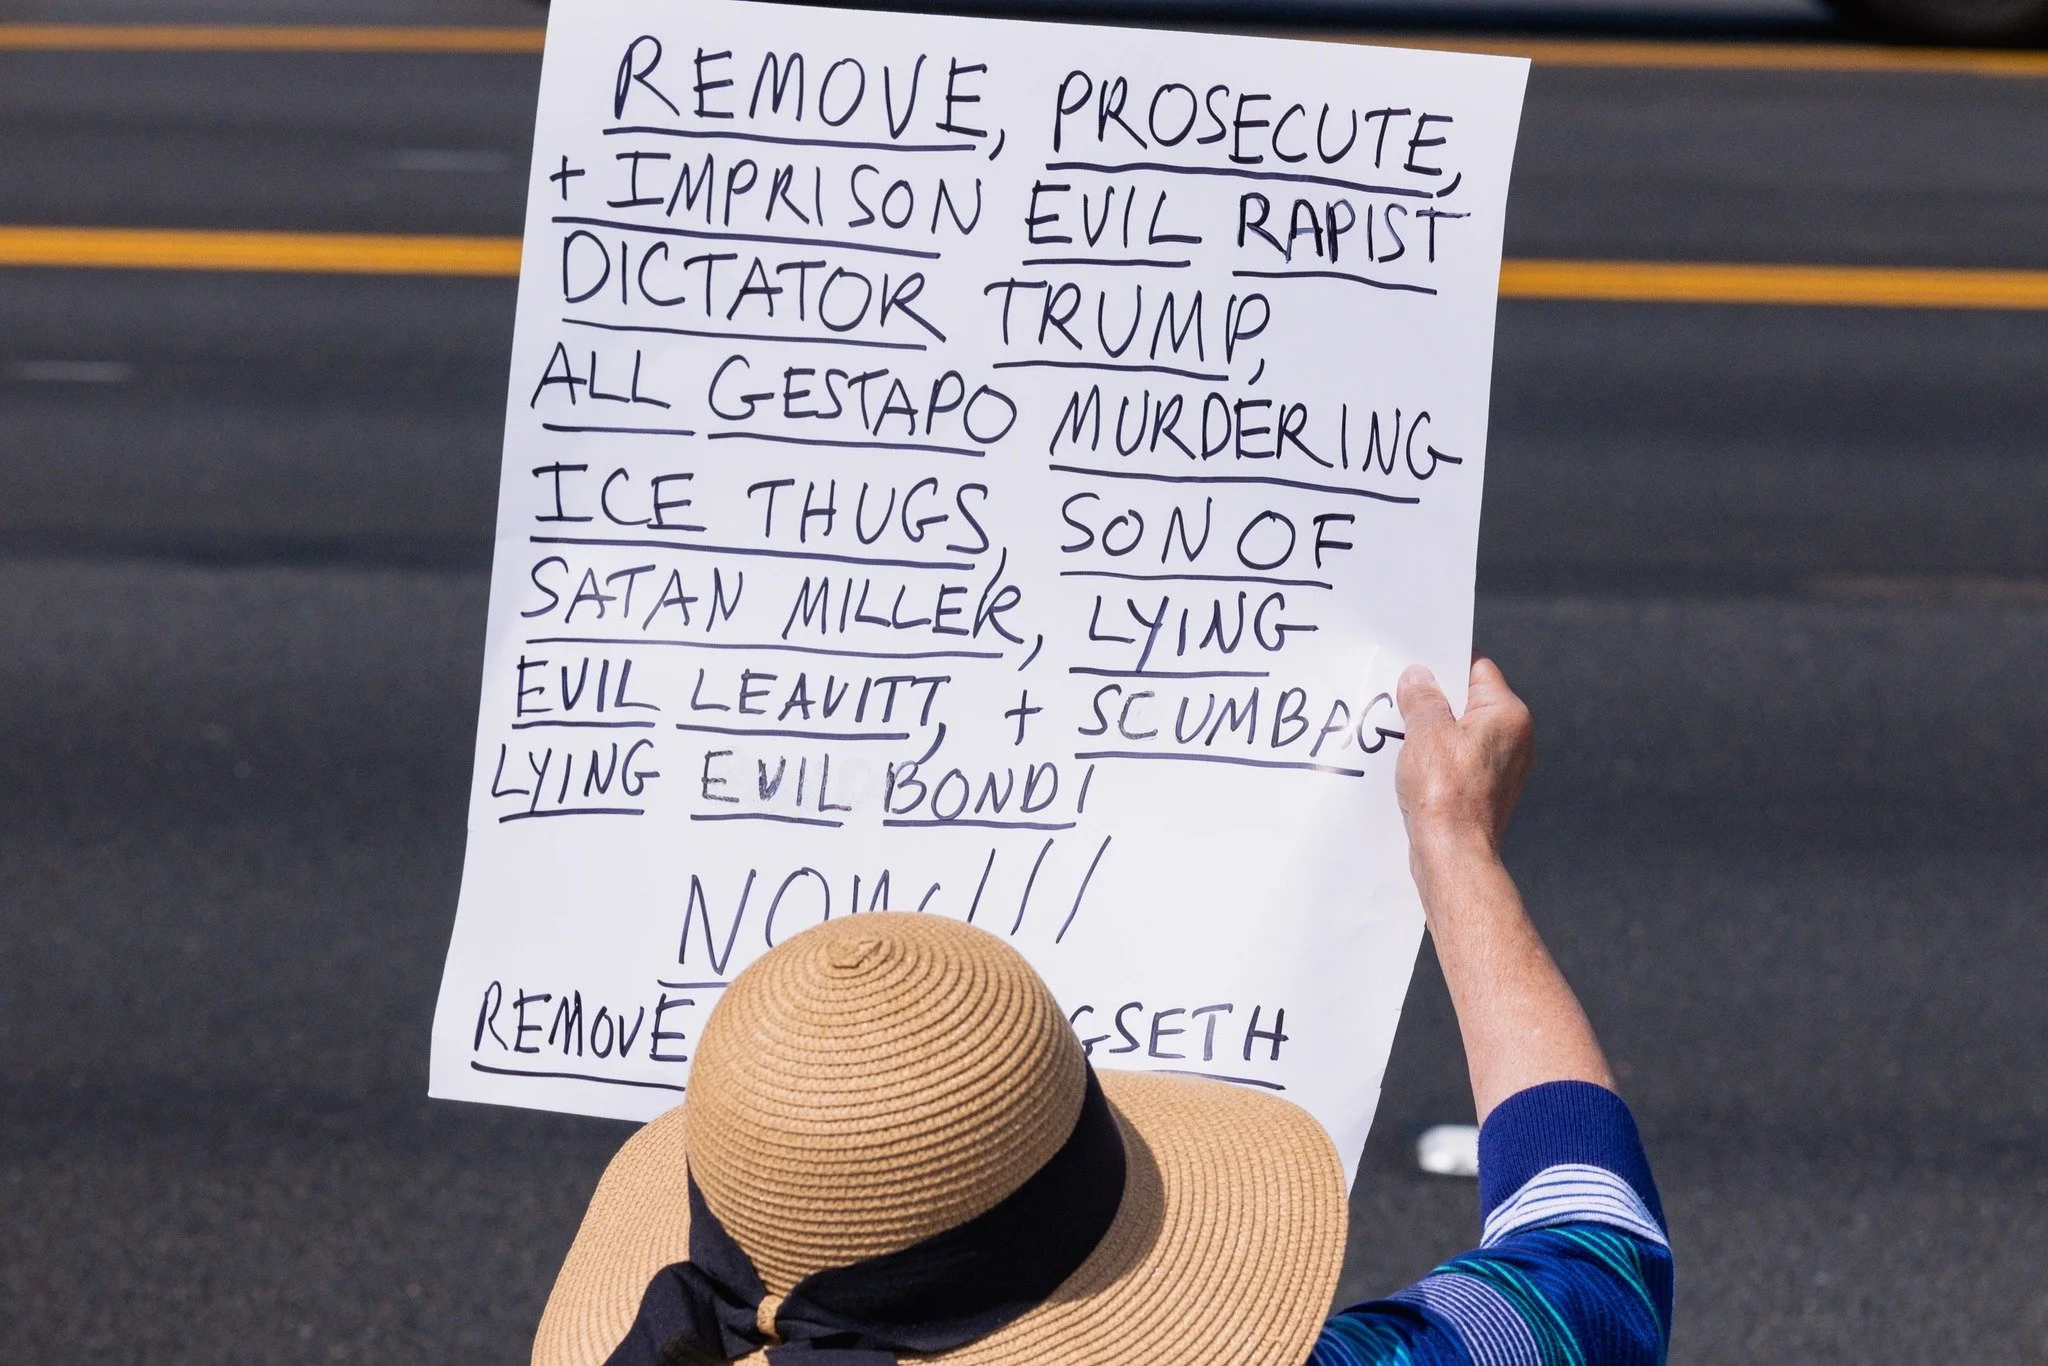 REMOVE, PROSECUTE,
+ IMPRISON EVIL RAPIST
DICTATOR TRUMP,
ALL GESTAPO MURDERING
ICE THUGS, SON OF
SATAN MILLER, LYING
EVIL LEAVITT, + SCUMBAG
LYING EVIL BONDI
NOW!!!
REMOVE